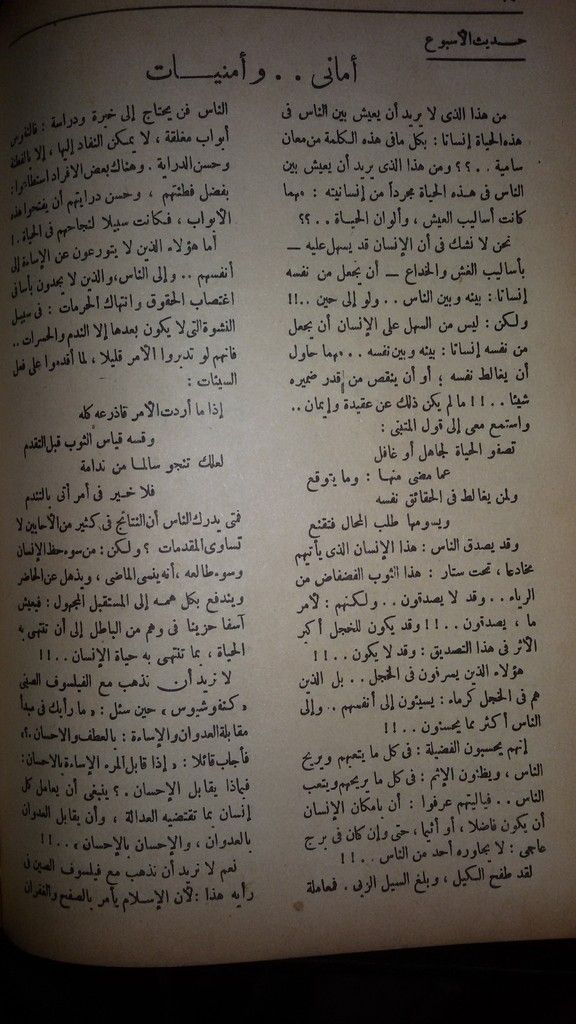 حديث الأسبوع
أمانى . . وأمنيات
من هذا الذى لا يريد أن يعيش بين الناس فى
هذه الحياة إنسانا : بكل مافى هذه الكلمة من معان
سامية . . ؟؟ ومن هذا الذى يريد أن يعيش بين
الناس فى هذه الحياة مجرداً من إنسانيته : مهما
كانت أساليب العيش ، وألوان الحياة . . ؟؟
نحن لا نشك فى أن الإنسان قد يسهل عليه —
بأساليب الغش والخداع — أن يجعل من نفسه
إنسانا : بينه وبين الناس . . ولو إلى حين . . !!
ولكن : ليس من السهل على الإنسان أن يجعل
من نفسه إنسانا : بينه وبين نفسه . . مهما حاول
أن يغالط نفسه ؛ أو أن ينقص من قدر ضميره
شيئا . . !! ما لم يكن ذلك عن عقيدة وإيمان . .
واستمع معى إلى قول المتنبى :
تصفو الحياة لجاهل أو غافل
عما مضى منها : وما يتوقع
ولمن يغالط فى الحقائق نفسه
ويسومها طلب المحال فتقنع
وقد يصدق الناس : هذا الإنسان الذى يأتيهم
مخادعا ، تحت ستار : هذا الثوب الفضفاض من
الرياء . . وقد لا يصدقون . . ولكنهم : لأمر
ما ، يصدقون . . !! وقد يكون للخجل أكبر
الأثر فى هذا التصديق : وقد لا يكون . . !!
هؤلاء الذين يسرفون فى الخجل . . بل الذين
هم فى الخجل كرماء : يسيئون إلى أنفسهم . . وإلى
الناس أكثر مما يحسنون . . !!
إنهم يحسبون الفضيلة : فى كل ما يتعبهم ويريح
الناس ، ويظنون الإثم : فى كل ما يريحهم ويتعب
الناس . . فياليتهم عرفوا : أن بامكان الإنسان
أن يكون فاضلا ، أو أثيما ، حتى وإن كان فى برج
عاجى : لا يجاوره أحد من الناس . . !!
لقد طفح الكيل ، وبلغ السيل الزبى . فمعاملة
الناس فن يحتاج إلى خبرة ودراسة : فالنفوس
أبواب مغلقة ، لا يمكن النفاد إليها ، إلا بالفطنة
وحسن الدراية . وهناك بعض الافراد استطاعوا :
بفضل فطنتهم ، وحسن درايتهم أن يفتحوا هذه
الأبواب ، فكانت سبيلا لنجاحهم فى الحياة . !
أما هؤلاء الذين لا يتورعون عن الإساءة إلى
أنفسهم . . وإلى الناس ، والذين لا يجدون بأسا فى
اغتصاب الحقوق وانتهاك الحرمات : فى سبيل
النشوة التى لا يكون بعدها إلا الندم والحسرات . .
فانهم لو تدبروا الأمر قليلا ، لما أقدموا على فعل
السيئات :
إذا ما أردت الأمر فاذرعه كله
وقسه قياس الثوب قبل التقدم
لعلك تنجو سالما من ندامة
فلا خير فى أمر أتى بالتندم
فتى يدرك الناس أن النتائج فى كثير من الأحايين لا
تساوى المقدمات ؟ ولكن : من سوء حظ الإنسان
وسوء طالعه ، أنه ينسى الماضى ، ويذهل عن الحاضر
ويندفع بكل همه إلى المستقبل المجهول : فيعيش
آسفا حزينا فى وهم من الباطل إلى أن تنتهى به
الحياة ، بما تنتهى به حياة الإنسان . . !!
لا نريد أن نذهب مع الفيلسوف الصينى
« كنفوشيوس » حين سئل : « ما رأيك فى مبدأ
مقابلة العدوان والإساءة : بالعطف والاحسان . ؟ »
فأجاب قائلا : « إذا قابل المرء الإساءة بالاحسان :
فبماذا يقابل الإحسان . ؟ ينبغى أن يعامل كل
إنسان بما تقتضيه العدالة ، وأن يقابل العدوان
بالعدوان ، والإحسان بالإحسان » . . !!
نعم لا نريد أن نذهب مع فيلسوف الصين فى
رأيه هذا : لأن الإسلام يأمر بالصفح والغفران